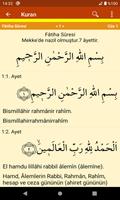 14:22
Kuran
Fâtiha Sûresi
1
Cüz 1
Fâtiha Sûresi
Mekke'de nazil olmuştur.7 âyettir.
بِسْمِ اللَّهِ الرَّحْمَٰنِ الرَّحِيمِ
1:1. Ayet
بِسْمِ اللَّهِ الرَّحْمَٰنِ الرَّحِيمِ
Bismillâhir rahmânir rahîm.
Bismillahirrahmânirrahîm.
1:2. Ayet
الْحَمْدُ لِلَّهِ رَبِّ الْعَالَمِينَ
El hamdu lillâhi rabbil âlemîn(âlemîne).
Hamd, Âlemlerin Rabbi, Rahmân, Rahîm,